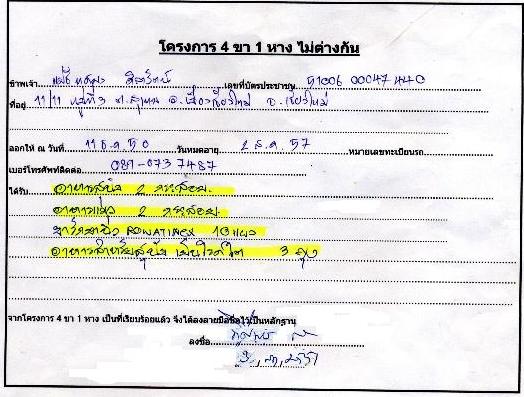 โครงการ 4 ขา 1 หาง ไม่ต่างกัน
ข้าพเจ้า เลขที่บัตรประชาชน 51006 00047 440
ที่อยู่ 11/11 หมู่ที่ 3 อ.เมืองเชียงใหม่ จ.เชียงใหม่
ออกให้ ณ วันที่ 11 ธ.ค. 50 วันหมดอายุ 2 ธ.ค. 57 หมายเลขทะเบียนรถ
เบอร์โทรศัพท์ติดต่อ 089-073 7487
ได้รับ อาหารสุนัข 2 กระสอบ.
อาหารแมว 2 กระสอบ.
ROWATINEX 10 แผง
อาหารสำหรับสุนัข เป็นโรคไต 3 ถุง
จากโครงการ 4 ขา 1 หาง เป็นที่เรียบร้อยแล้ว จึงได้ลงลายมือชื่อไว้เป็นหลักฐาน
ลงชื่อ